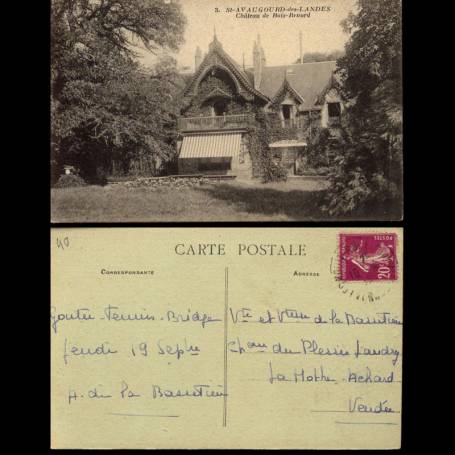 3. St-AVAUGOURD-des-LANDES
Château de Bois-Renard
40
CARTE POSTALE
CORRESPONDANCE
ADRESSE
POSTES
20c
Gouter-Tennis-Bridge
Jeudi 19 Septbre
A. de la Bassetière
Vte et Vtesse de la Bassetière
Chau du Plessis Landry
La Mothe-Achard
Vendée